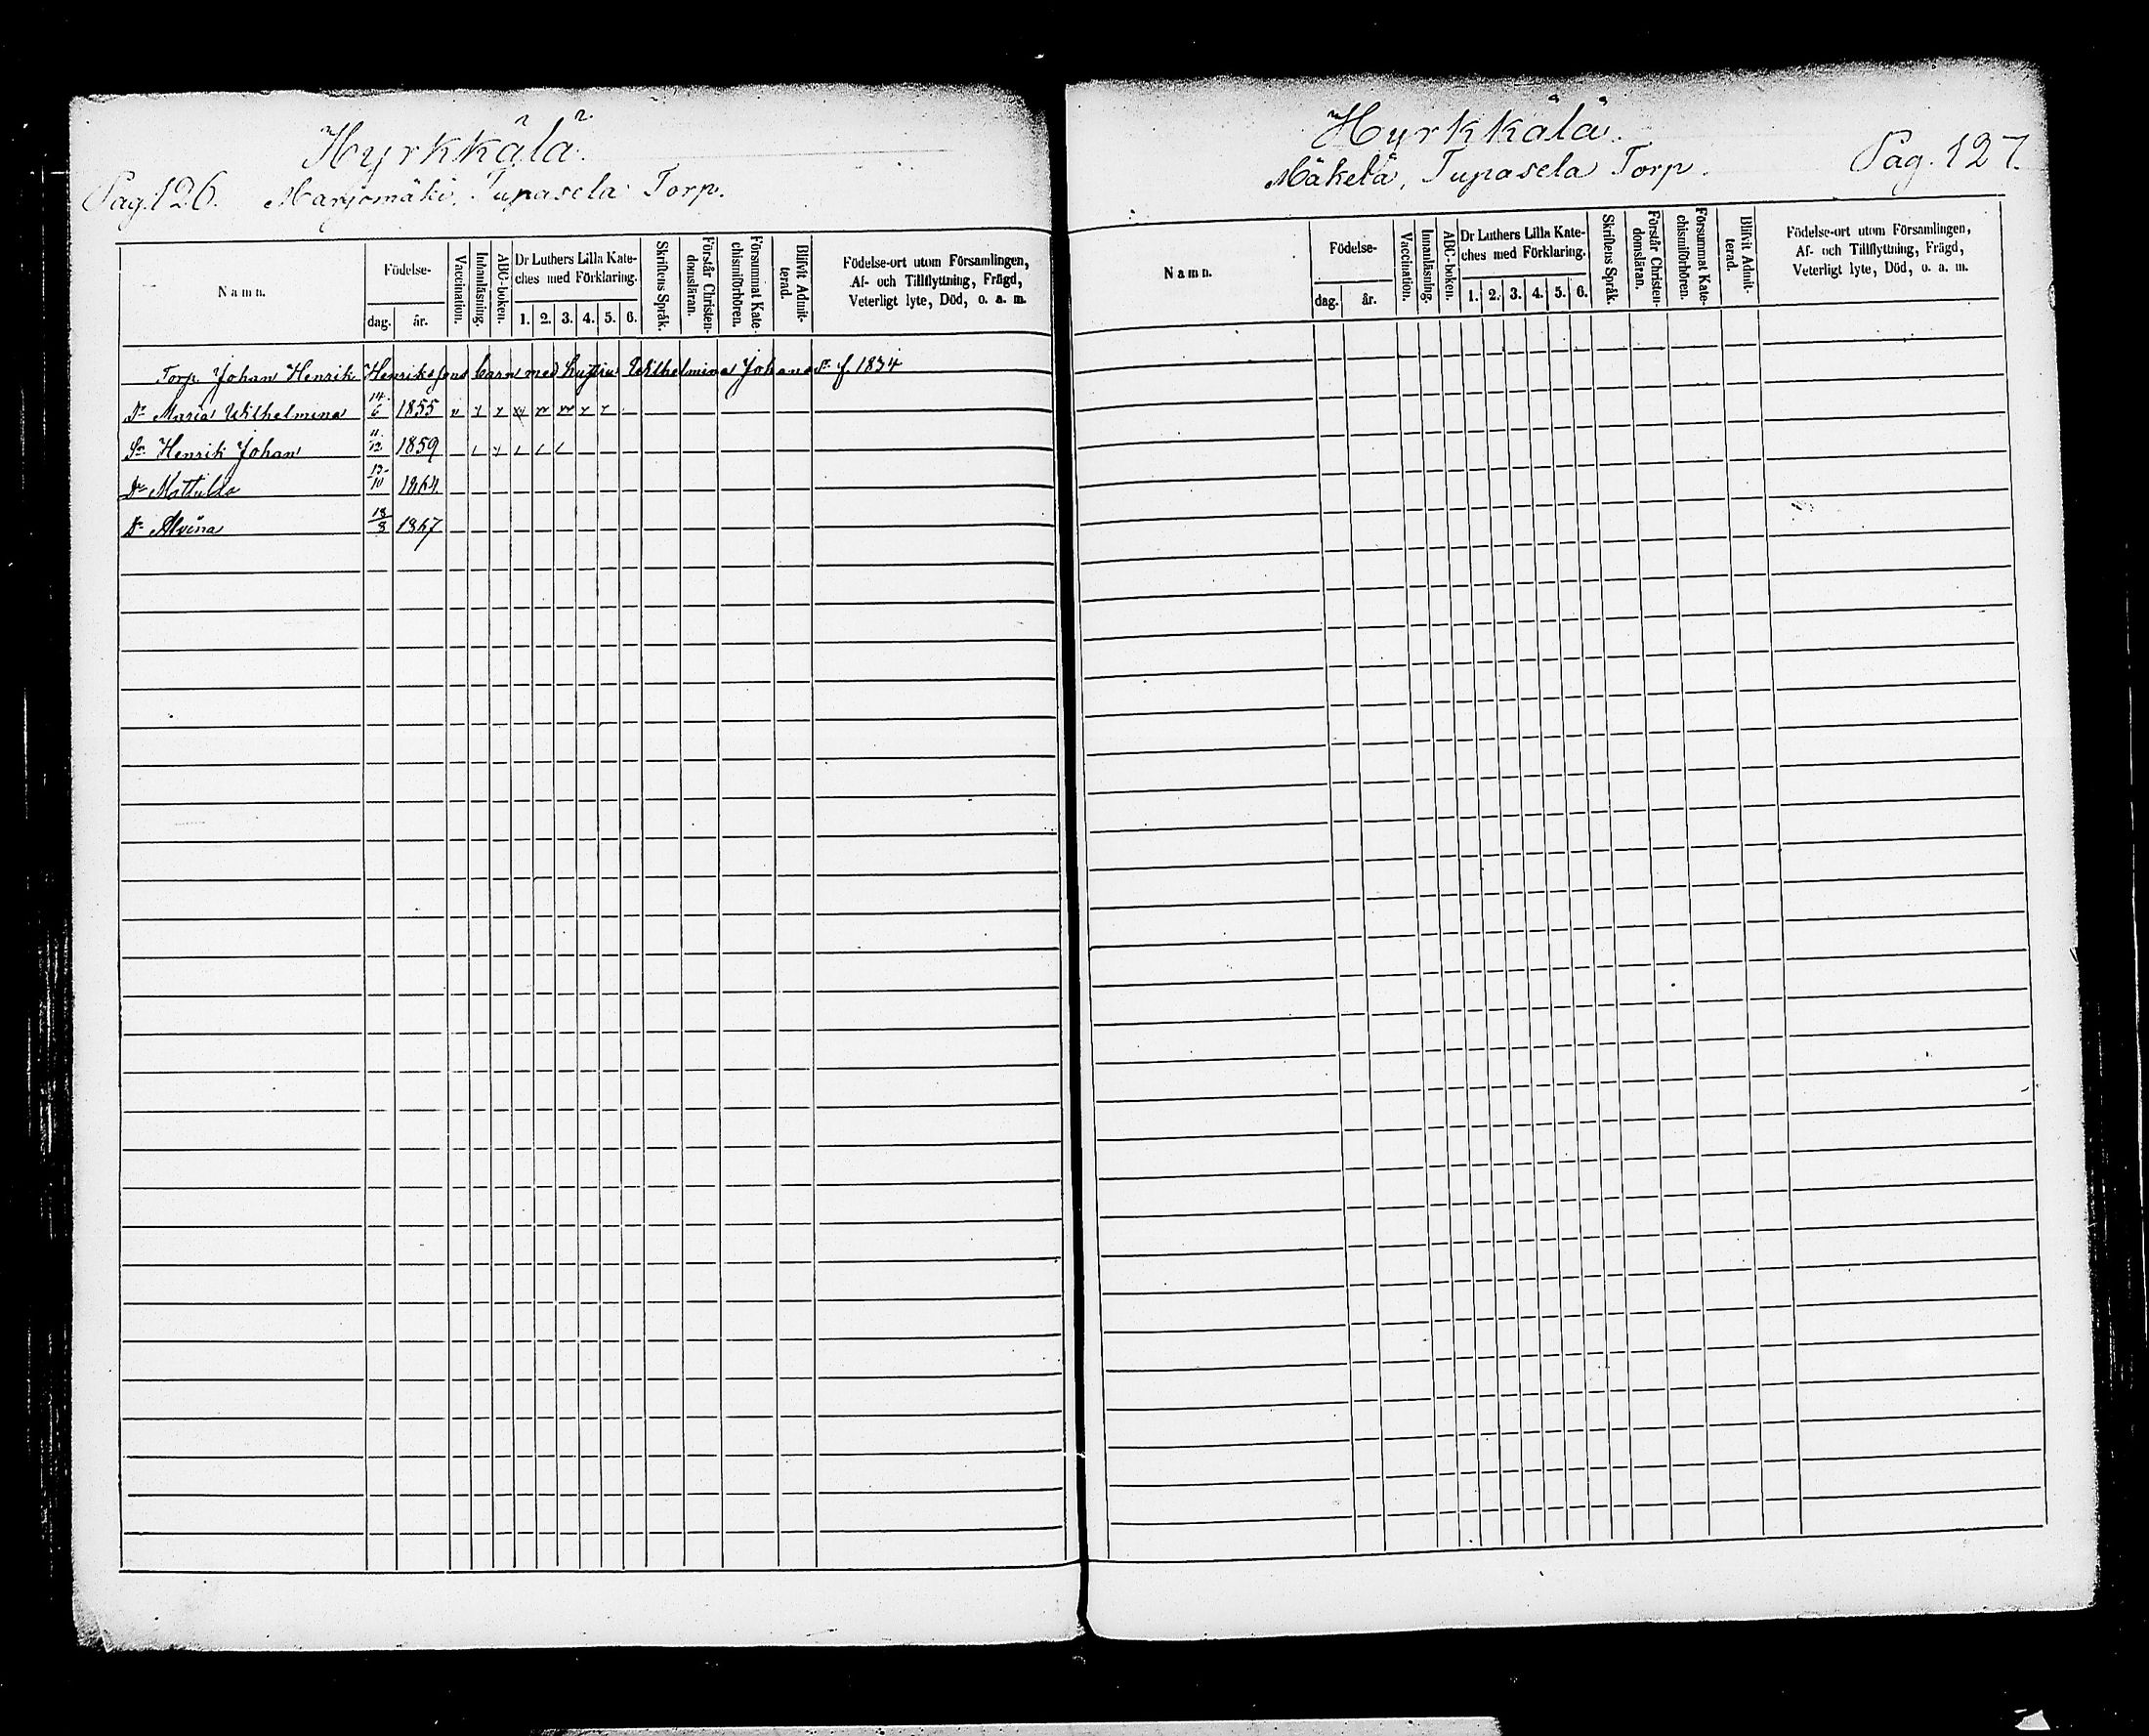 Hyrkkälä.
Pag. 126. Marjomäki, Tupasela Torp.
Namn.
Födelse-
dag.
år.
Vaccination.
Innanläsning.
ABC-boken.
Dr Luthers Lilla Kate-
ches med Förklaring.
1. 2. 3. 4. 5. 6.
Skriftens Språk.
Förstår Christen-
domsläran.
Försummat Kate-
chismiförhören.
Blifvit Admit-
terad.
Födelse-ort utom Församlingen,
Af- och Tillflyttning, Frägd,
Veterligt lyte, Död, o. a. m.
Torp. Johan Henrik Henrikssons barn med hustru Wilhelmina Johansdr f. 1834
Dr Maria Wilhelmina 14/6 1855
Sn Henrik Johan 11/12 1859
Dr Mathilda 13/10 1864
Dr Alvina 18/8 1867
Hyrkkälä.
Mäkelä, Tupasela Torp.
Pag. 127.
Namn.
Födelse-
dag.
år.
Vaccination.
Innanläsning.
ABC-boken.
Dr Luthers Lilla Kate-
ches med Förklaring.
1. 2. 3. 4. 5. 6.
Skriftens Språk.
Förstår Christen-
domsläran.
Försummat Kate-
chismiförhören.
Blifvit Admit-
terad.
Födelse-ort utom Församlingen,
Af- och Tillflyttning, Frägd,
Veterligt lyte, Död, o. a. m.